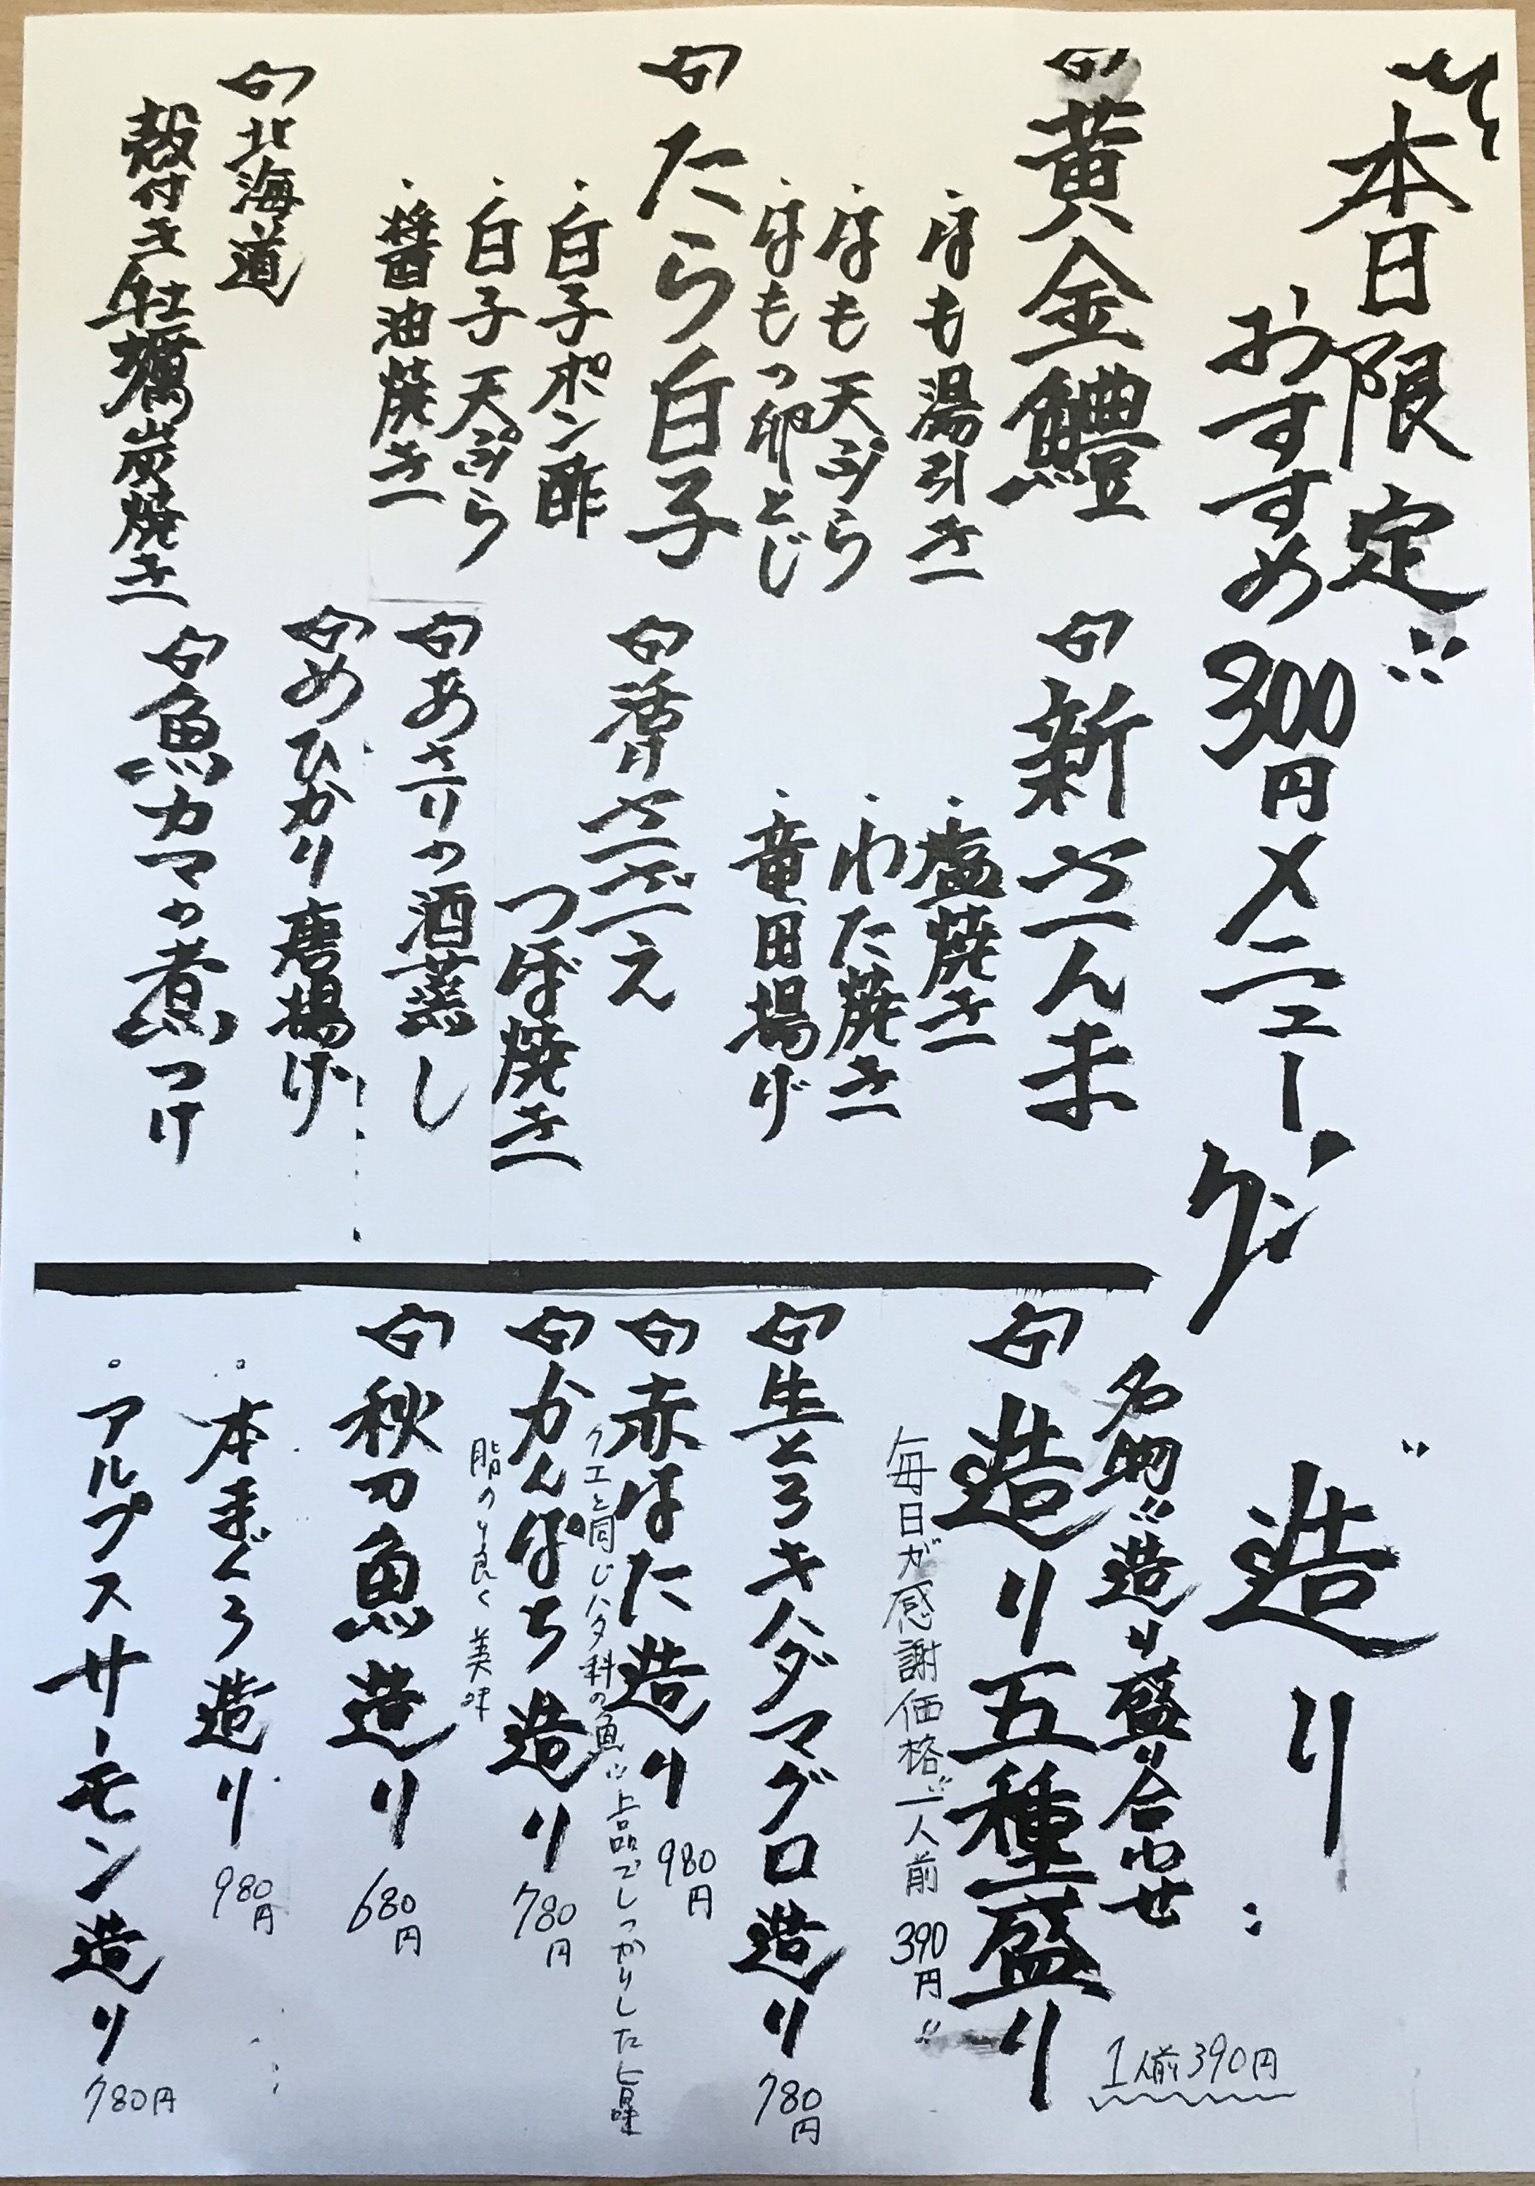 本日限定!!
おすすめ300円メニューグ!
黄金鱧
・はも湯引き
・はも天ぷら
・はもつ卵とじ
たら白子
・白子ポン酢
・白子天ぷら
・醤油焼き
北海道
殻付き牡蠣炭焼き
新さんま
・塩焼き
・わた焼き
・竜田揚げ
活けさざえ
つぼ焼き
あさりの酒蒸し
めひかり唐揚げ
魚カマの煮つけ
造り
名物!!造り盛り合わせ
1人前390円
造り五種盛り
毎日が感謝価格!!一人前390円!!
生とろキハダマグロ造り780円
赤はた造り980円
クエと同じハタ科の魚!!上品でしっかりした旨味
かんぱち造り780円
脂のり良く美味
秋刀魚造り680円
。本まぐろ造り980円
。アルプスサーモン造り780円